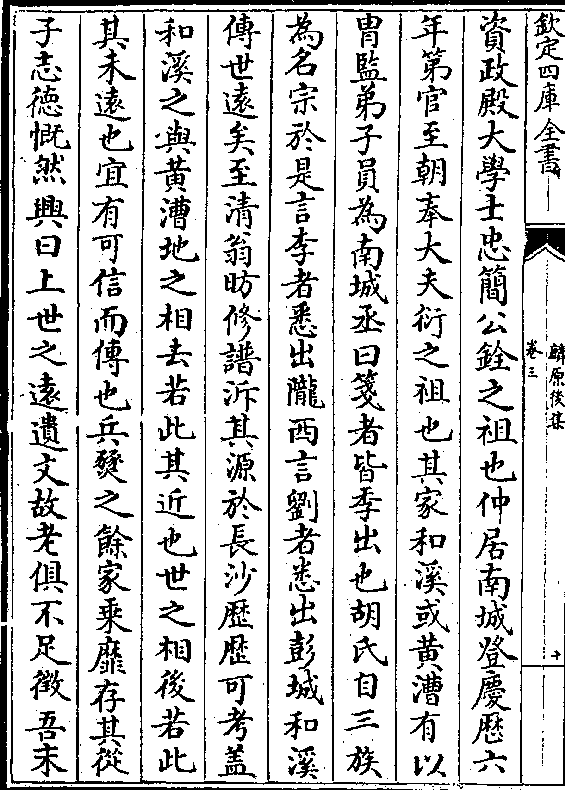 欽定四庫全書
麟原後集
卷三
十
資政殿大學士忠簡公銓之祖也仲居南城登慶歷六
年第官至朝奉大夫衍之祖也其家和溪或黄漕有以
胄監弟子員為南城丞曰箋者皆季出也胡氏自三族
為名宗於是言李者悉出隴西言劉者悉出彭城和溪
傳世遠矣至清翁昉修譜泝其源於長沙歴歴可考盖
和溪之與黄漕地之相去若此其近也世之相後若此
其未遠也宜有可信而傳也兵燹之餘家乗靡存其從
子志德慨然興曰上世之遠遺文故老俱不足徵吾未